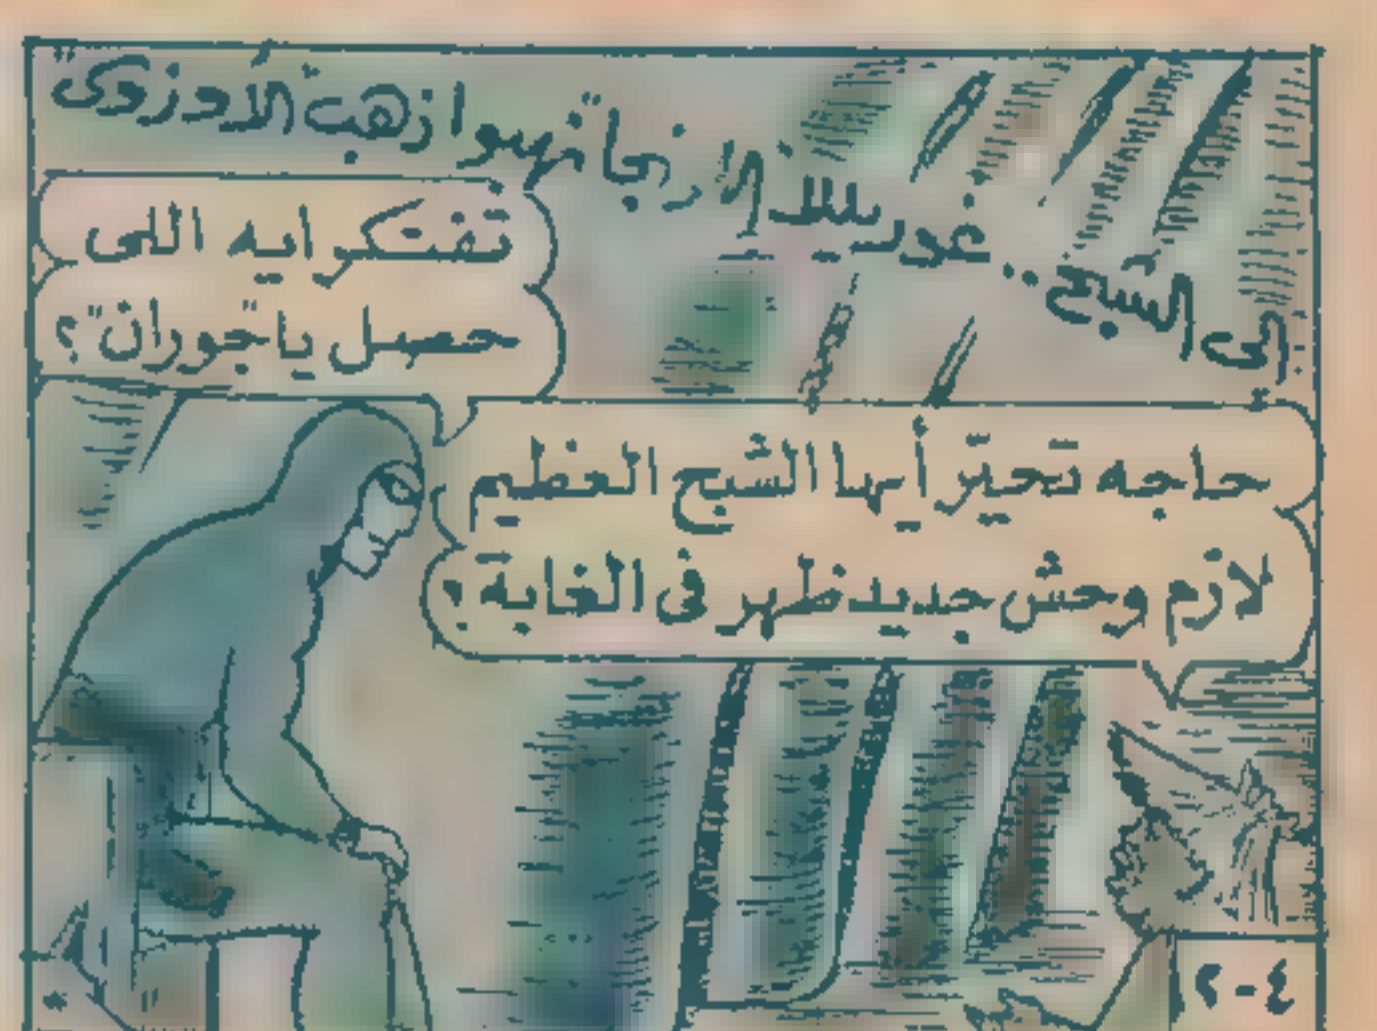 إلى الشبح .. غوريللا الارنجا
تفتكر ايه اللى
حصل يا "جوران" ؟
حاجه تحيّر أيها الشبح العظيم
لازم وحش جديد ظهر فى الغابة ؟
٤-٢